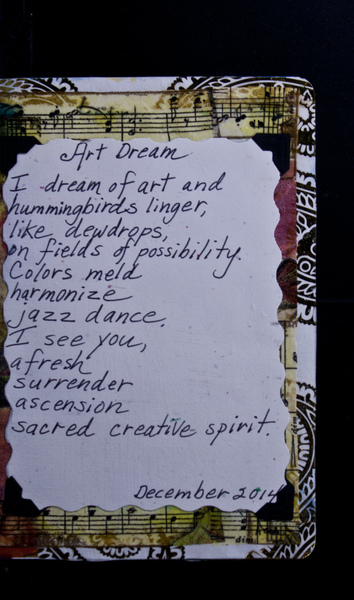 Art Dream
I dream of art and
hummingbirds linger,
like dewdrops,
on fields of possibility.
Colors meld
harmonize
jazz dance.
I see you,
afresh
surrender
ascension
sacred creative spirit.
December 2014
dim